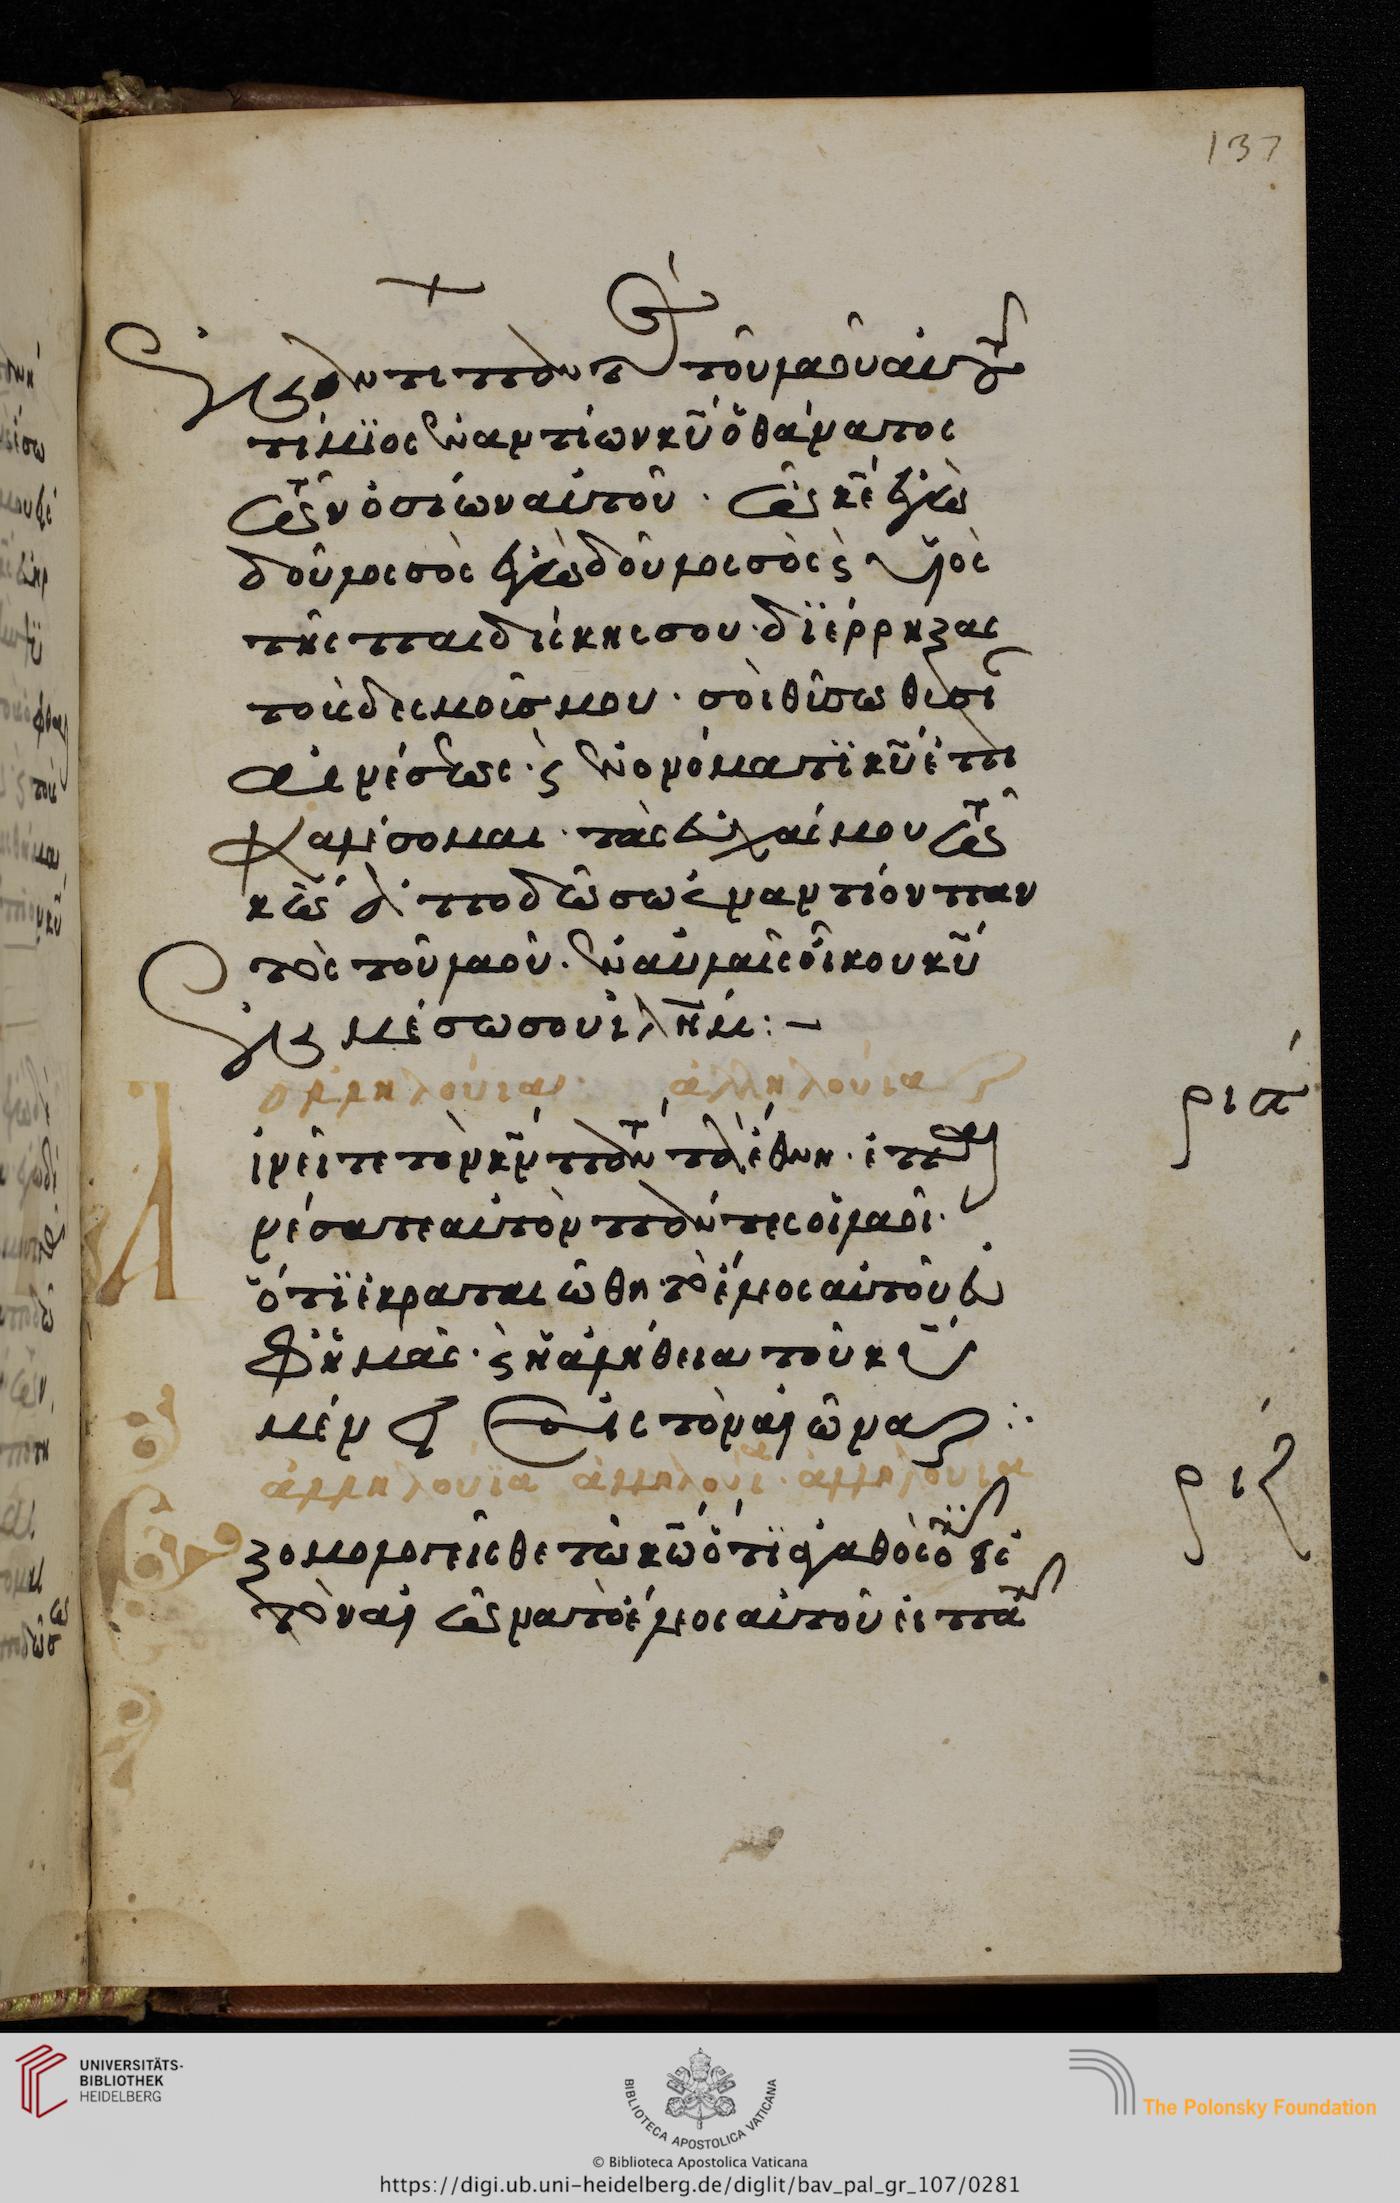 137
ἐναντι παντὸς τοῦ λαοῦ αὐτοῦ
τίμϊος ἐναντίων κ̅υ̅ ὁ θάνατος
τῶν ὁσίων αὐτοῦ · ὦ κ̅ε̅ ἐγὼ
δοῦλος σὸς ἐγὼ δοῦλος σὸς ϛ υἱὸς
τῆς παιδίσκης σου · δϊέρρηξας
τοὺς δεσμούς μου · σοὶ θύσω θυσίαν
αἰνέσεως · ϛ ἐν ὀνόματϊ κ̅υ̅ ἐπι
καλέσομαι · τὰς εὐχάς μου τῶ
κ̅ω̅ ἀποδώσω ἐναντίον παν
τὸς τοῦ λαοῦ · ἐν αὐλαῖς οἴκου κ̅υ̅
ἐν μέσω σου ἱλ̅η̅μ̅ : –
ἀλληλούια · ἀλληλούια
ριϛ
Αἰνεῖτε τὸν κ̅ν̅ πάντα τὰ ἔθνη · ἐπαι
νέσατε αὐτὸν πάντες οἱ λαοί ·
ὅτϊ ἐκραταιώθη τὸ ἔλεος αὐτοῦ ἐ
φ' ἡμᾶς · ϛ ἡ ἀλήθεια τοῦ κ̅υ̅
μένει εἰς τὸν αἰῶνα :·
ἀλληλούϊα ἀλληλούια · ἀλληλούια
ριζ
Ἐξομολογεῖσθε τῶ κ̅ω̅ ὅτϊ ἀγαθός ὅτι εἰς
τὸν αἰῶνα τὸ ἔλεος αὐτοῦ εἰπά
UNIVERSITÄTS-
BIBLIOTHEK
HEIDELBERG
BIBLIOTECA APOSTOLICA VATICANA
The Polonsky Foundation
© Biblioteca Apostolica Vaticana
https://digi.ub.uni-heidelberg.de/diglit/bav_pal_gr_107/0281